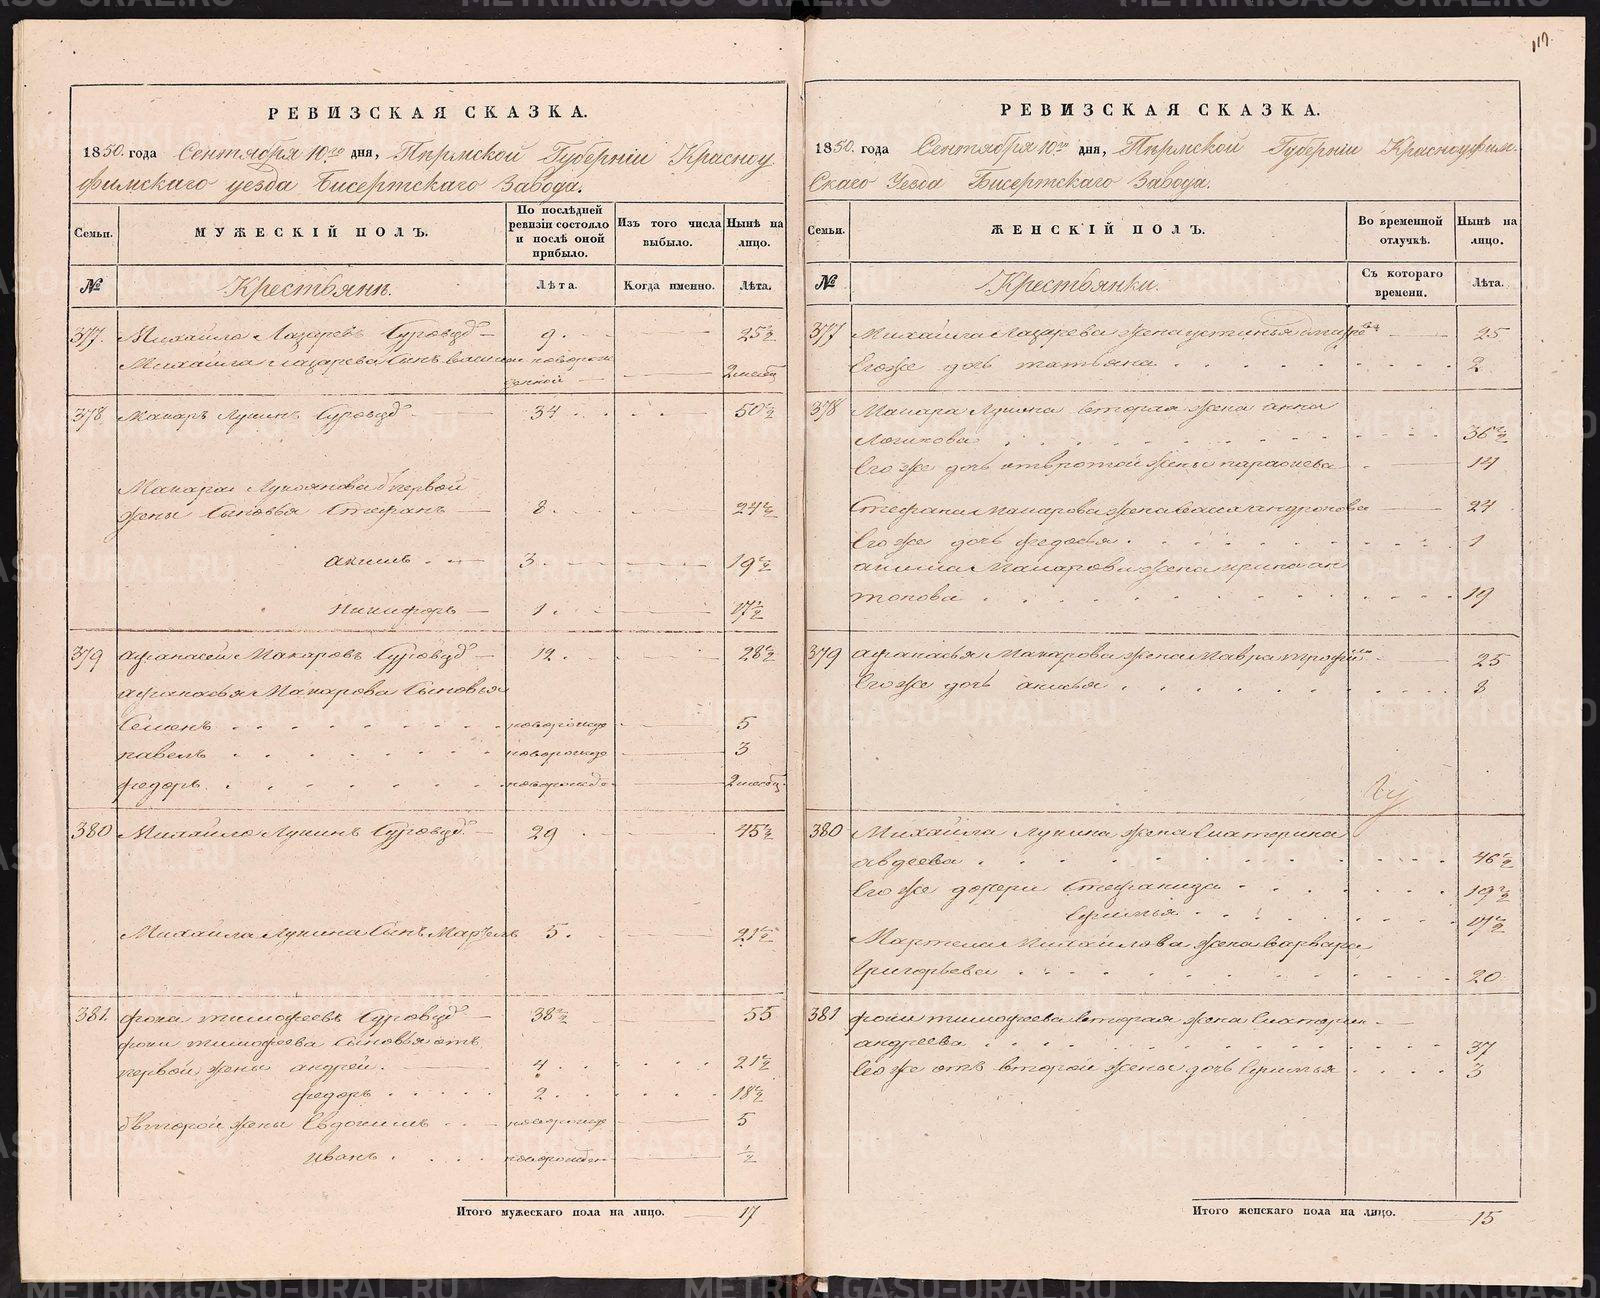 117.
РЕВИЗСКАЯ СКАЗКА.
1850. года Сентября 10го дня, Пермской Губерніи Красноу
фимскаго уезда Бисертскаго Завода.
Семьи.
МУЖЕСКІЙ ПОЛЪ.
По послѣдней ревизіи состояло и послѣ оной прибыло.
Изъ того числа выбыло.
Нынѣ на лицо.
№
Крестьянъ.
Лѣта.
Когда именно.
Лѣта.
377. Михайло Лазаревъ 9. 25½
Михайла Лазарева Сынъ василей новорож
денной 2 месяц
378. Макаръ Лукинъ 34 50½
Макара Лукоянова б первой
жены Сыновья Стефанъ 8. 24½
акимъ 3. 19½
Никифоръ 1. 17½
379 афанасей Макаровъ 12. 28½
афанасья Макарова Сыновья
Семенъ новорожде 5
павелъ новорожде 3
федоръ новорожде 2 месяц.
380 Михайло Лукинъ 29 45½
Михайла Лукина Сынъ Мартелъ 5. 21½
381. фока тимофеевъ 38½ 55
фоки тимофеева Сыновья отъ
первой жены андрей. 4. 21½
федоръ 2. 18½
б второй жены Евдокимъ новорожде 5
иванъ. новорожден ½
Итого мужескаго пола на лицо. 17
РЕВИЗСКАЯ СКАЗКА.
1850. года Сентября 10го дня, Пермской Губерніи Красноуфим-
Скаго Уезда Бисертскаго Завода.
Семьи.
ЖЕНСКІЙ ПОЛЪ.
Во временной отлучкѣ.
Нынѣ на лицо.
№
Крестьянки.
Съ котораго времени.
Лѣта.
377 Михайла Лазарева жена устинья 25
Его же дочь татьяна 2
378 Макара Лукина вторая жена анна
Логинова 36½
Его же дочь отвротой жены параскева 14
Стефана макарова жена 24
Его же дочь федосья 1
акима Макарова жена ирина ан
тонова 19
379 афанасья Макарова жена Мавра трофи 25
Его же дочь анисья 3
380 Михайла Лукина жена Екатерина
авдеева 46½
Его же дочери Стефанида 19½
Ефимья 17½
Мартела михайлова жена варвара
Григорьева 20
381 фоки тимофеева вторая жена Екатерин
андреева 37
Его же отъ второй жены дочь Ефимья 3
Итого женскаго пола на лицо. 15
METRIKI.GASO-URAL.RU